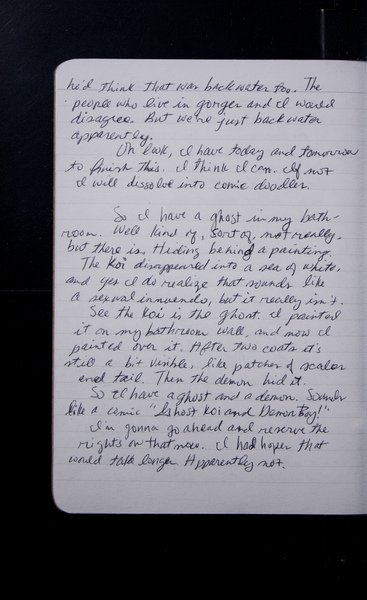 he'd think that was backwater too. The
people who live in gorges and I would
disagree. But we're just backwater
apparently.
Oh look, I have today and tomorrow
to finish this. I think I can. If not
I will dissolve into comic doodles.
So I have a ghost in my bath-
room. Well kind of, sort of, not really,
but there is. Hiding behind a painting.
The Koi disappeared into a sea of white,
and yes I do realize that sounds like
a sexual innuendo, but it really isn't.
See the Koi is the ghost. I painted
it on my bathroom wall, and now I
painted over it. After two coats it's
still a bit visible, like patches of scales
and tail. Then the demon hid it.
So I have a ghost and a demon. Sounds
like a comic "Ghost Koi and Demon Boy!"
I'm gonna go ahead and reserve the
rights on that now. I had hopes that
would take longer. Apparently not.